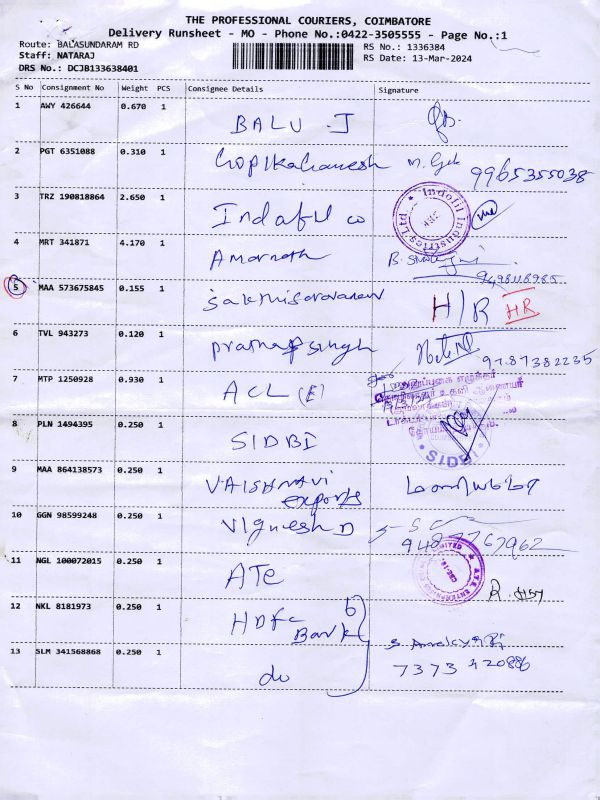 THE PROFESSIONAL COURIERS, COIMBATORE
Delivery Runsheet - MO - Phone No.:0422-3505555 - Page No.:1
Route: BALASUNDARAM RD
RS No.: 1336384
Staff: NATARAJ
RS Date: 13-Mar-2024
DRS No.: DCJB133638401
S No Consignment No Weight PCS Consignee Details Signature
1 AWY 426644 0.670 1
BALU J
2 PGT 6351088 0.310 1
9965355038
3 TRZ 190818864 2.650 1
Indofil co
Indofil Industries Ltd
4 MRT 341871 4.170 1
Amarnath
5 MAA 573675845 0.155 1
Sakthisaravanan H/R HR
6 TVL 943273 0.120 1
Prathap Singh 9787382235
7 MTP 1250928 0.930 1
ACL (E)
8 PLN 1494395 0.250 1
SIDBI
SIDBI
9 MAA 864138573 0.250 1
VAISHNAVI
exports
10 GGN 98599248 0.250 1
Vignesh D
9487767962
11 NGL 100072015 0.250 1
ATE
12 NKL 8181973 0.250 1
HDFC
Bank
13 SLM 341568868 0.250 1
do
7373420886